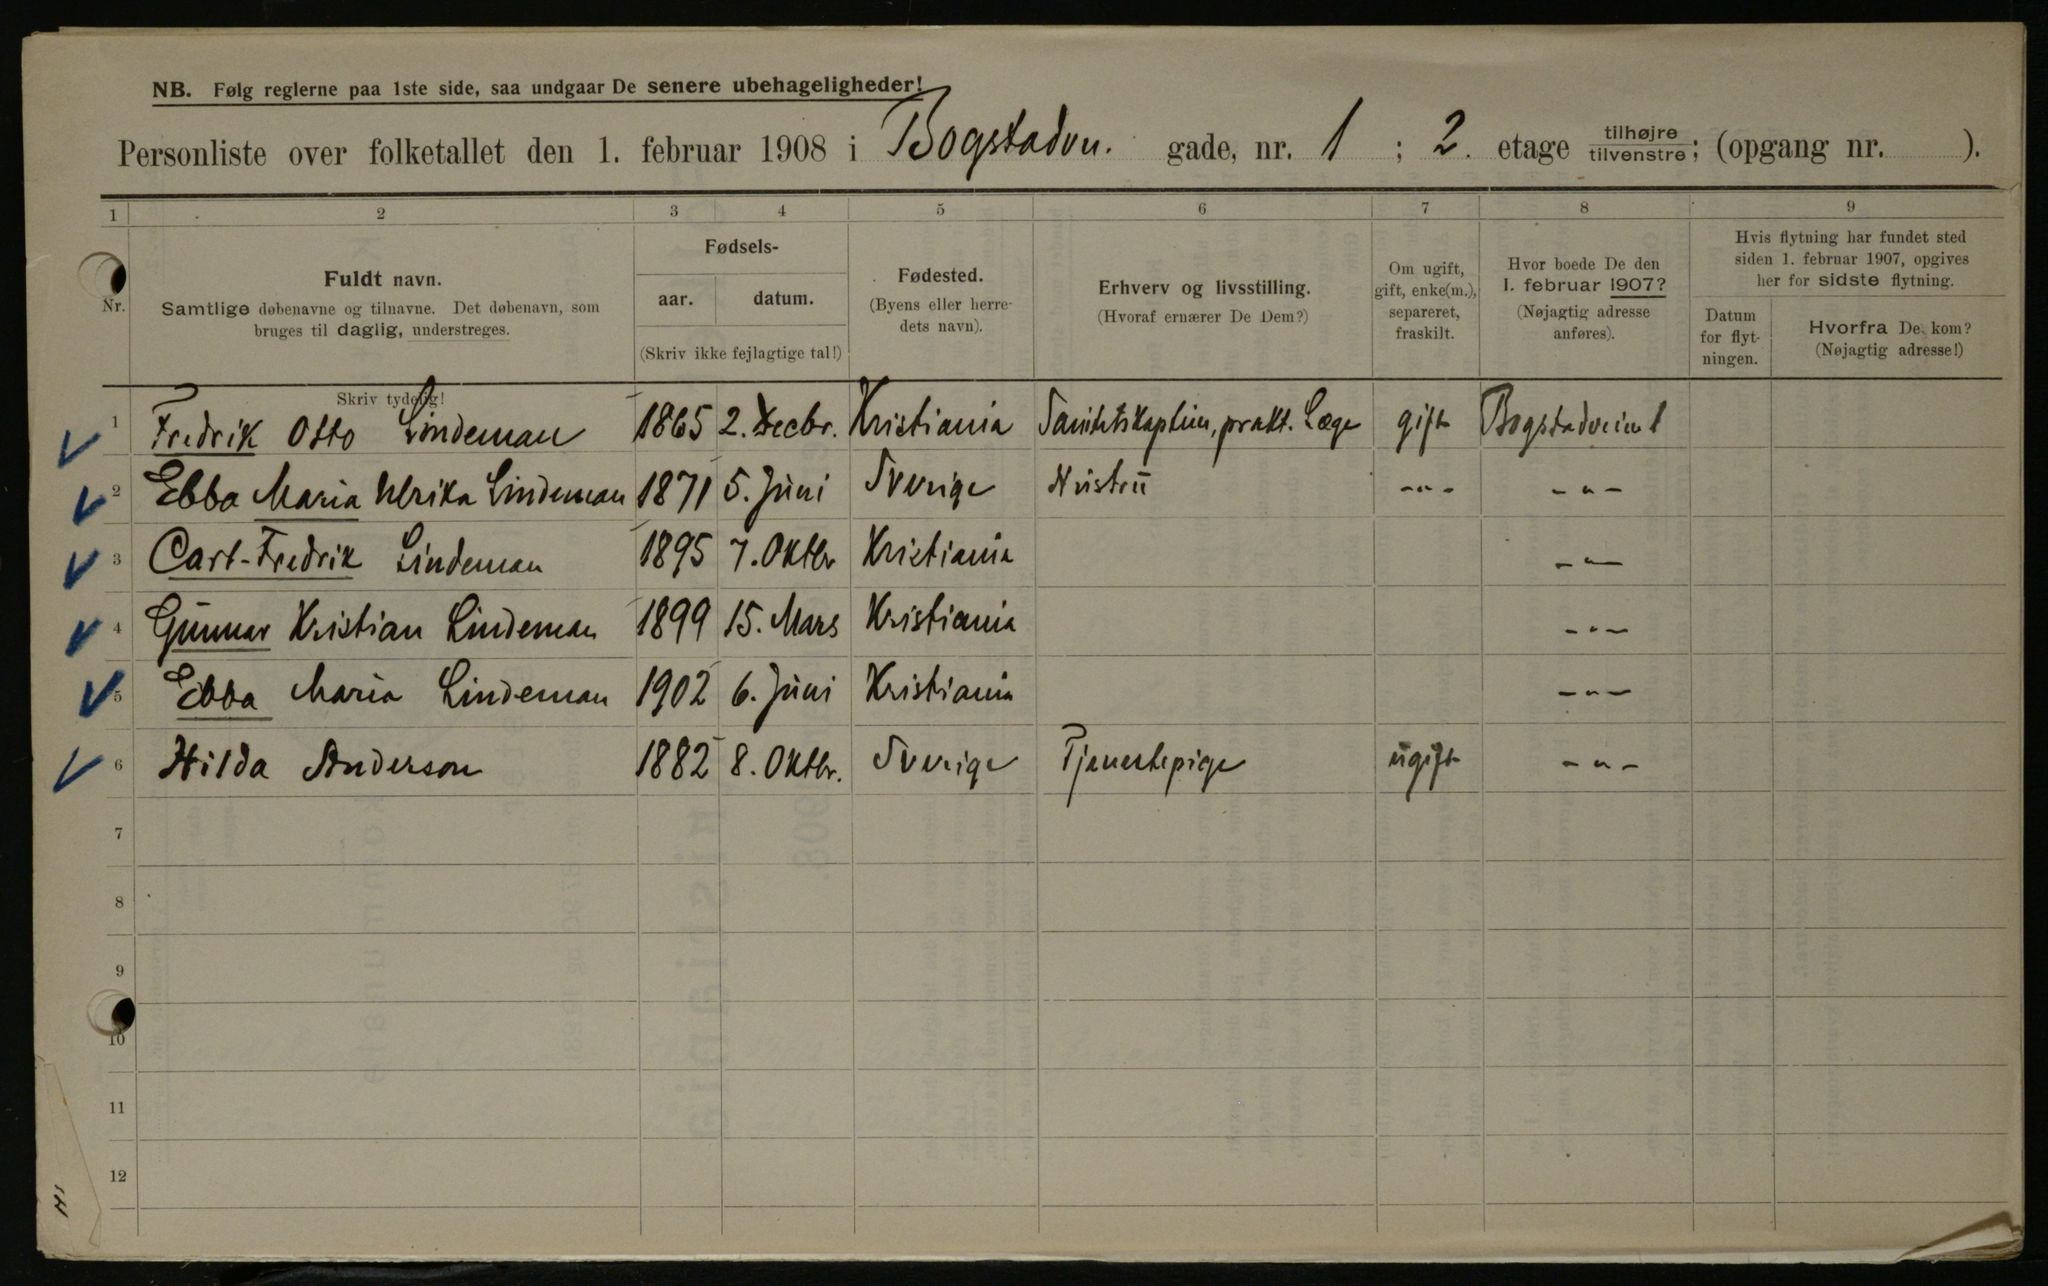 NB. Følg reglerne paa 1ste side, saa undgaar De senere ubehageligheder!
Personliste over folketallet den 1. februar 1908 i Bogstadvn. gade, nr. 1 ; 2. etage tilhøjre tilvenstre; (opgang nr. ).
1 2 3 4 5 6 7 8 9
Nr.
Fuldt navn.
Samtlige døbenavne og tilnavne. Det døbenavn, som
bruges til daglig, understreges.
Fødsels-
aar. datum.
(Skriv ikke fejlagtige tal!)
Fødested.
(Byens eller herre-
dets navn).
Erhverv og livsstilling.
(Hvoraf ernærer De Dem?)
Om ugift,
gift, enke(m.),
separeret,
fraskilt.
Hvor boede De den
1. februar 1907?
(Nøjagtig adresse
anføres).
Hvis flytning har fundet sted
siden 1. februar 1907, opgives
her for sidste flytning.
Datum
for flyt-
ningen.
Hvorfra De kom?
(Nøjagtig adresse!)
Skriv tydelig!
1 Fredrik Otto Lindeman 1865 2. Decbr. Kristiania Sanitetskaptein, prakt. Læge gift Bogstadveien 1
2 Ebba Maria Ulrika Lindeman 1871 5. Juni Sverige Hustru -"- -"-
3 Carl-Fredrik Lindeman 1895 7. Oktbr Kristiania -"-
4 Gunnar Kristian Lindeman 1899 15. Mars Kristiania -"-
5 Ebba Maria Lindeman 1902 6. Juni Kristiania -"-
6 Hilda Anderson 1882 8. Oktbr. Sverige Tjenestepige ugift -"-
7
8
9
10
11
12